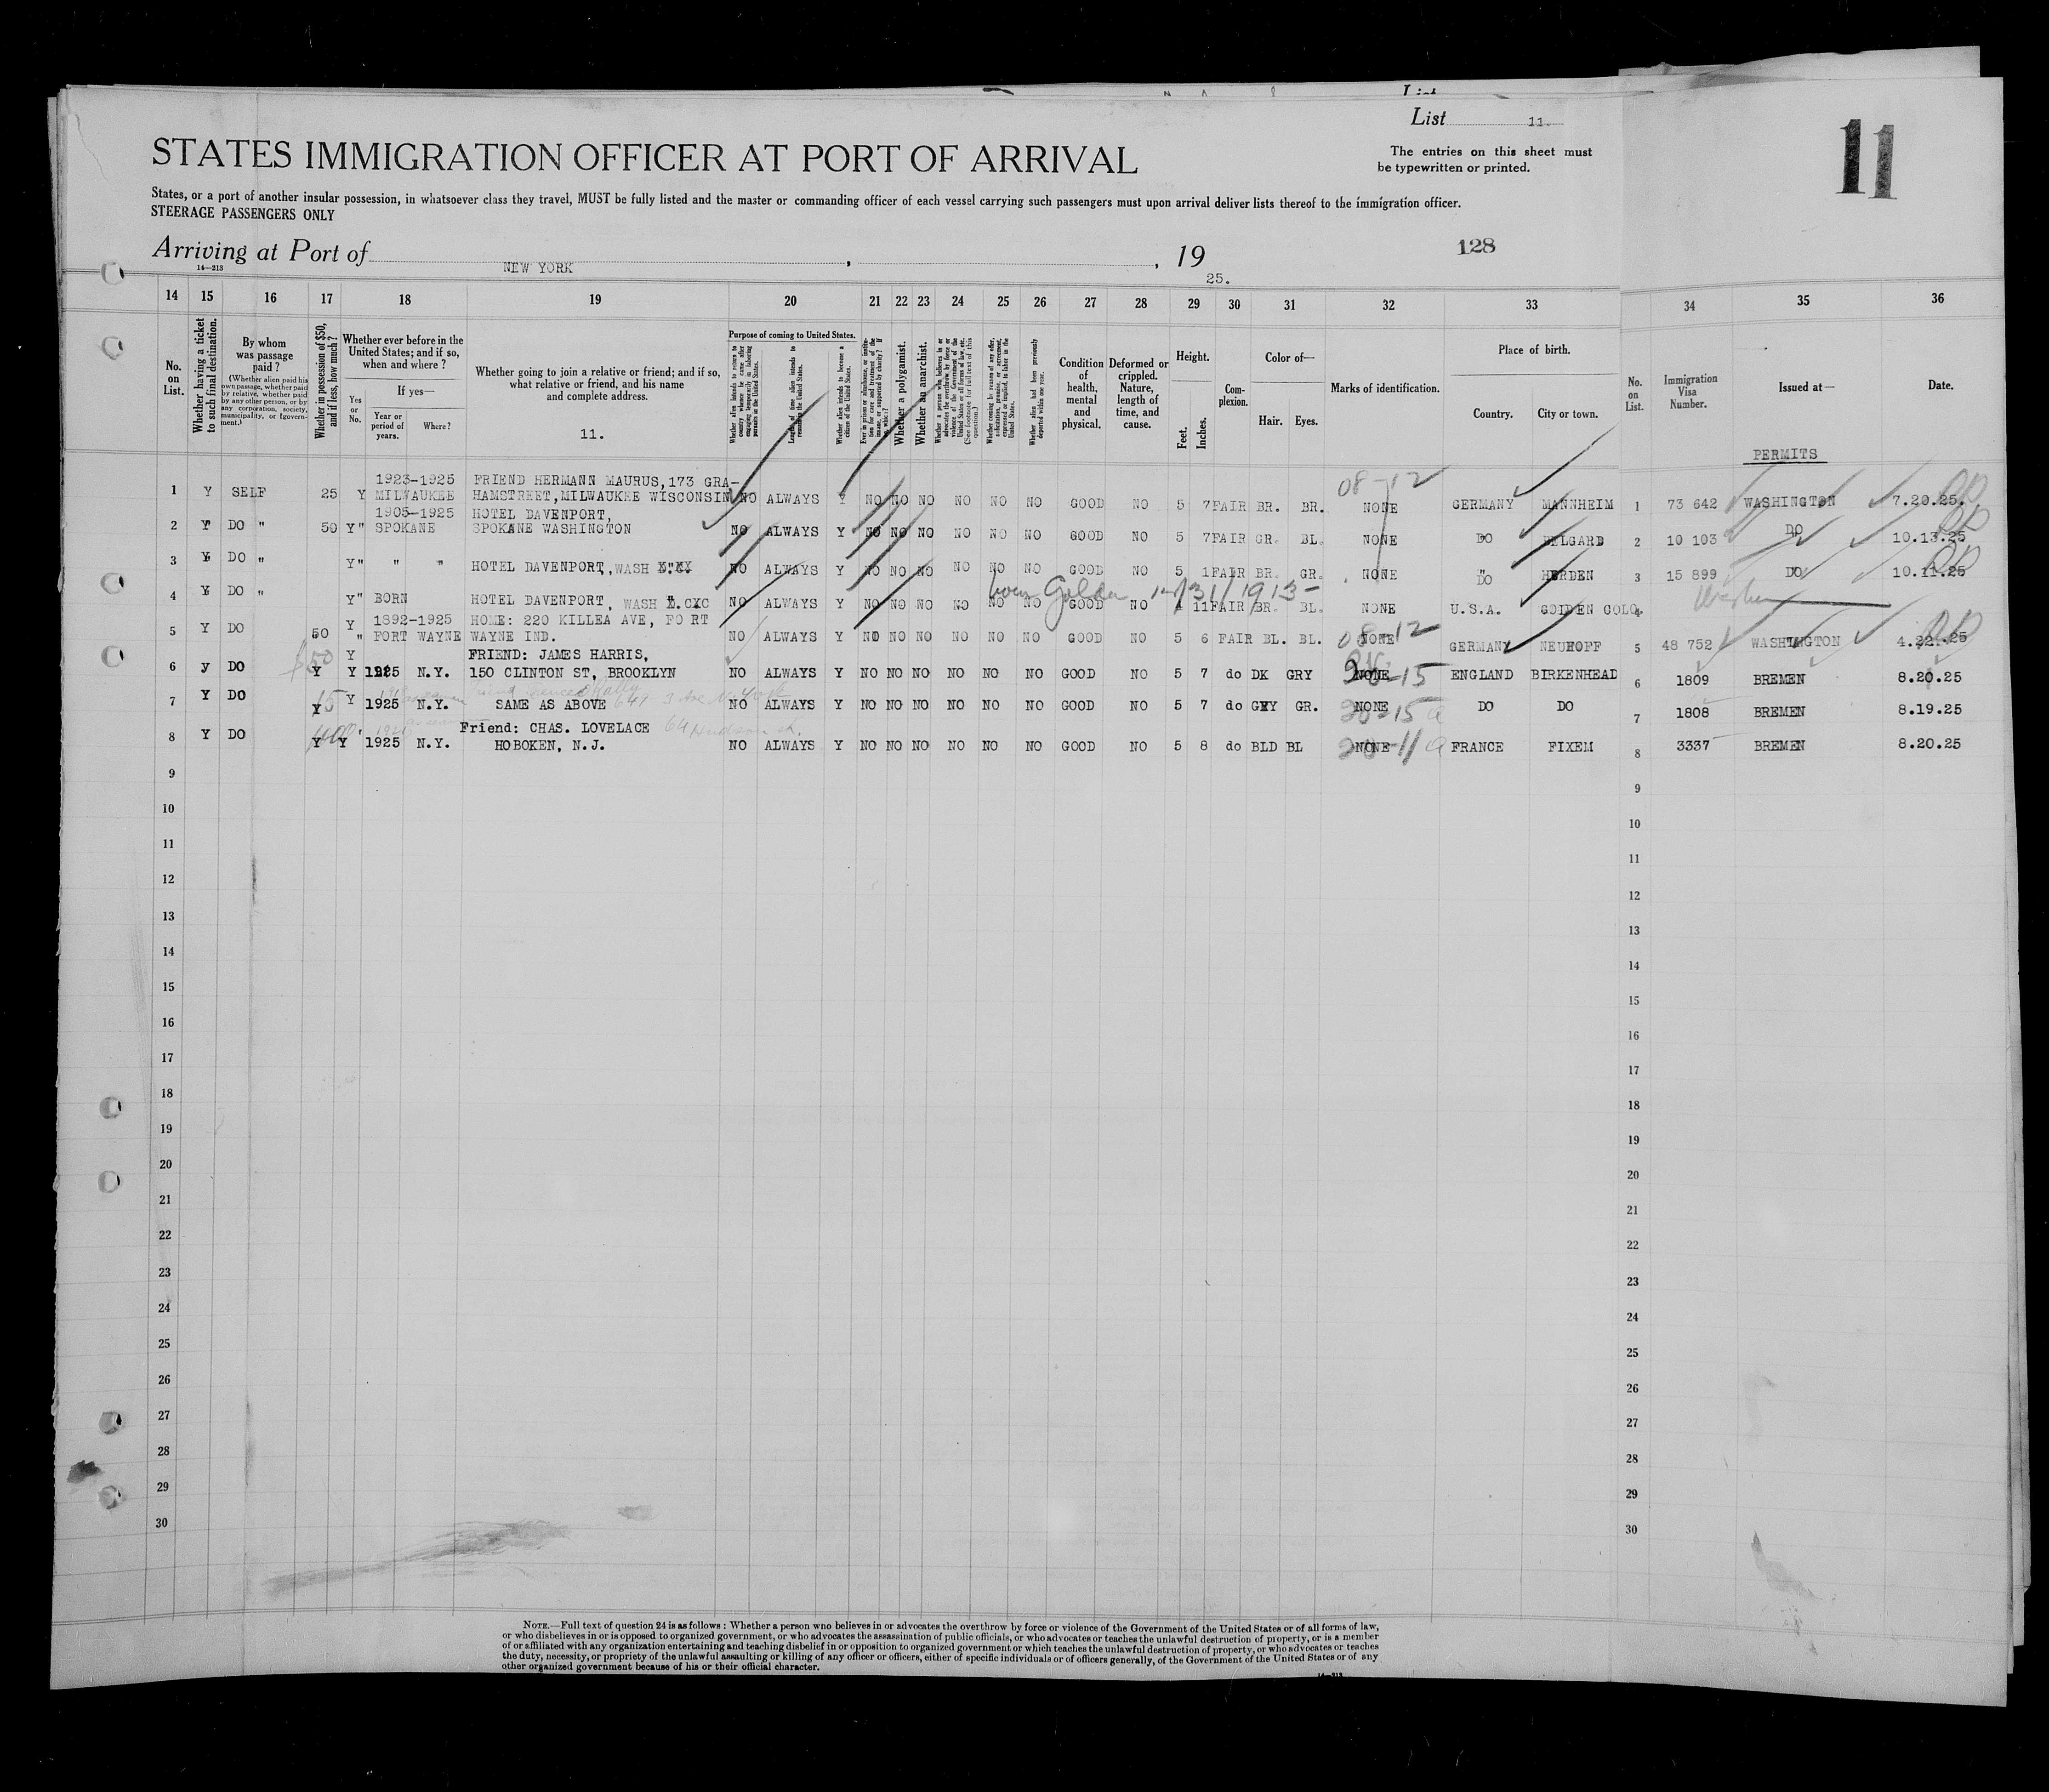 List 11.
11
STATES IMMIGRATION OFFICER AT PORT OF ARRIVAL
The entries on this sheet must
be typewritten or printed.
States, or a port of another insular possession, in whatsoever class they travel, MUST be fully listed and the master or commanding officer of each vessel carrying such passengers must upon arrival deliver lists thereof to the immigration officer.
STEERAGE PASSENGERS ONLY
Arriving at Port of NEW YORK , , 19 25.
128
14—213
14 15 16 17 18 19 20 21 22 23 24 25 26 27 28 29 30 31 32 33 34 35 36
No. on List.
Whether having a ticket to such final destination.
By whom was passage paid?
(Whether alien paid his own passage, whether paid by relative, whether paid by any other person, or by any corporation, society, municipality, or government.)
Whether in possession of $50, and if less, how much?
Whether ever before in the United States; and if so, when and where?
Yes or No.
If yes—
Year or period of years.
Where?
Whether going to join a relative or friend; and if so, what relative or friend, and his name and complete address.
11.
Purpose of coming to United States.
Whether alien intends to return to country whence he came after engaging temporarily in laboring pursuits in the United States.
Length of time alien intends to remain in the United States.
Whether alien intends to become a citizen of the United States.
Whether a polygamist.
Whether an anarchist.
Whether alien had been previously deported within one year.
Condition of health, mental and physical.
Deformed or crippled. Nature, length of time, and cause.
Height.
Feet. Inches.
Complexion.
Color of—
Hair. Eyes.
Marks of identification.
Place of birth.
Country. City or town.
No. on List.
Immigration Visa Number.
Issued at—
Date.
PERMITS
1 Y SELF 25 Y 1923-1925 MILWAUKEE FRIEND HERMANN MAURUS, 173 GRA-
HAMSTREET, MILWAUKEE WISCONSIN NO ALWAYS Y NO NO NO NO NO NO GOOD NO 5 7 FAIR BR. BR. NONE 08-12 GERMANY MANNHEIM 1 73 642 WASHINGTON 7.20.25.
2 Y DO " 50 Y" 1905-1925 SPOKANE HOTEL DAVENPORT,
SPOKANE WASHINGTON NO ALWAYS Y NO NO NO NO NO NO GOOD NO 5 7 FAIR GR. BL. NONE DO BELGARD 2 10 103 DO 10.13.25
3 Y DO " Y" " " HOTEL DAVENPORT, WASH NO ALWAYS Y NO NO NO NO NO NO GOOD NO 5 1 FAIR BR. GR. NONE " DO HERDEN 3 15 899 DO 10.11.25
born Golden 10/31/1913
4 Y DO " Y" BORN HOTEL DAVENPORT, WASH NO ALWAYS Y NO NO NO NO NO NO GOOD NO 4 11 FAIR BR. BL. NONE U.S.A. GOLDEN COLO. 4
5 Y DO 50 Y " 1892-1925 FORT WAYNE HOME: 220 KILLEA AVE, FORT
WAYNE IND. NO ALWAYS Y NO NO NO NO NO NO GOOD NO 5 6 FAIR BL. BL. NONE 08-12 GERMANY NEUHOFF 5 48 752 WASHINGTON 4.22.25
6 y DO $50 Y Y Y 1925 N.Y. FRIEND: JAMES HARRIS,
150 CLINTON ST, BROOKLYN NO ALWAYS Y NO NO NO NO NO NO GOOD NO 5 7 do DK GRY NONE ENGLAND BIRKENHEAD 6 1809 BREMEN 8.20.25
7 Y DO 15 Y Y 1925 N.Y. SAME AS ABOVE NO ALWAYS Y NO NO NO NO NO NO GOOD NO 5 7 do GRY GR. NONE DO DO 7 1808 BREMEN 8.19.25
8 Y DO Y Y 1925 N.Y. Friend: CHAS. LOVELACE 64 Hudson st.
HOBOKEN, N.J. NO ALWAYS Y NO NO NO NO NO NO GOOD NO 5 8 do BLD BL NONE FRANCE FIXEM 8 3337 BREMEN 8.20.25
9 9
10 10
11 11
12 12
13 13
14 14
15 15
16 16
17 17
18 18
19 19
20 20
21 21
22 22
23 23
24 24
25 25
26 26
27 27
28 28
29 29
30 30
NOTE.—Full text of question 24 is as follows: Whether a person who believes in or advocates the overthrow by force or violence of the Government of the United States or of all forms of law,
or who disbelieves in or is opposed to organized government, or who advocates the assassination of public officials, or who advocates or teaches the unlawful destruction of property, or is a member
of or affiliated with any organization entertaining and teaching disbelief in or opposition to organized government or which teaches the unlawful destruction of property, or who advocates or teaches
the duty, necessity, or propriety of the unlawful assaulting or killing of any officer or officers, either of specific individuals or of officers generally, of the Government of the United States or of any
other organized government because of his or their official character.
14—213